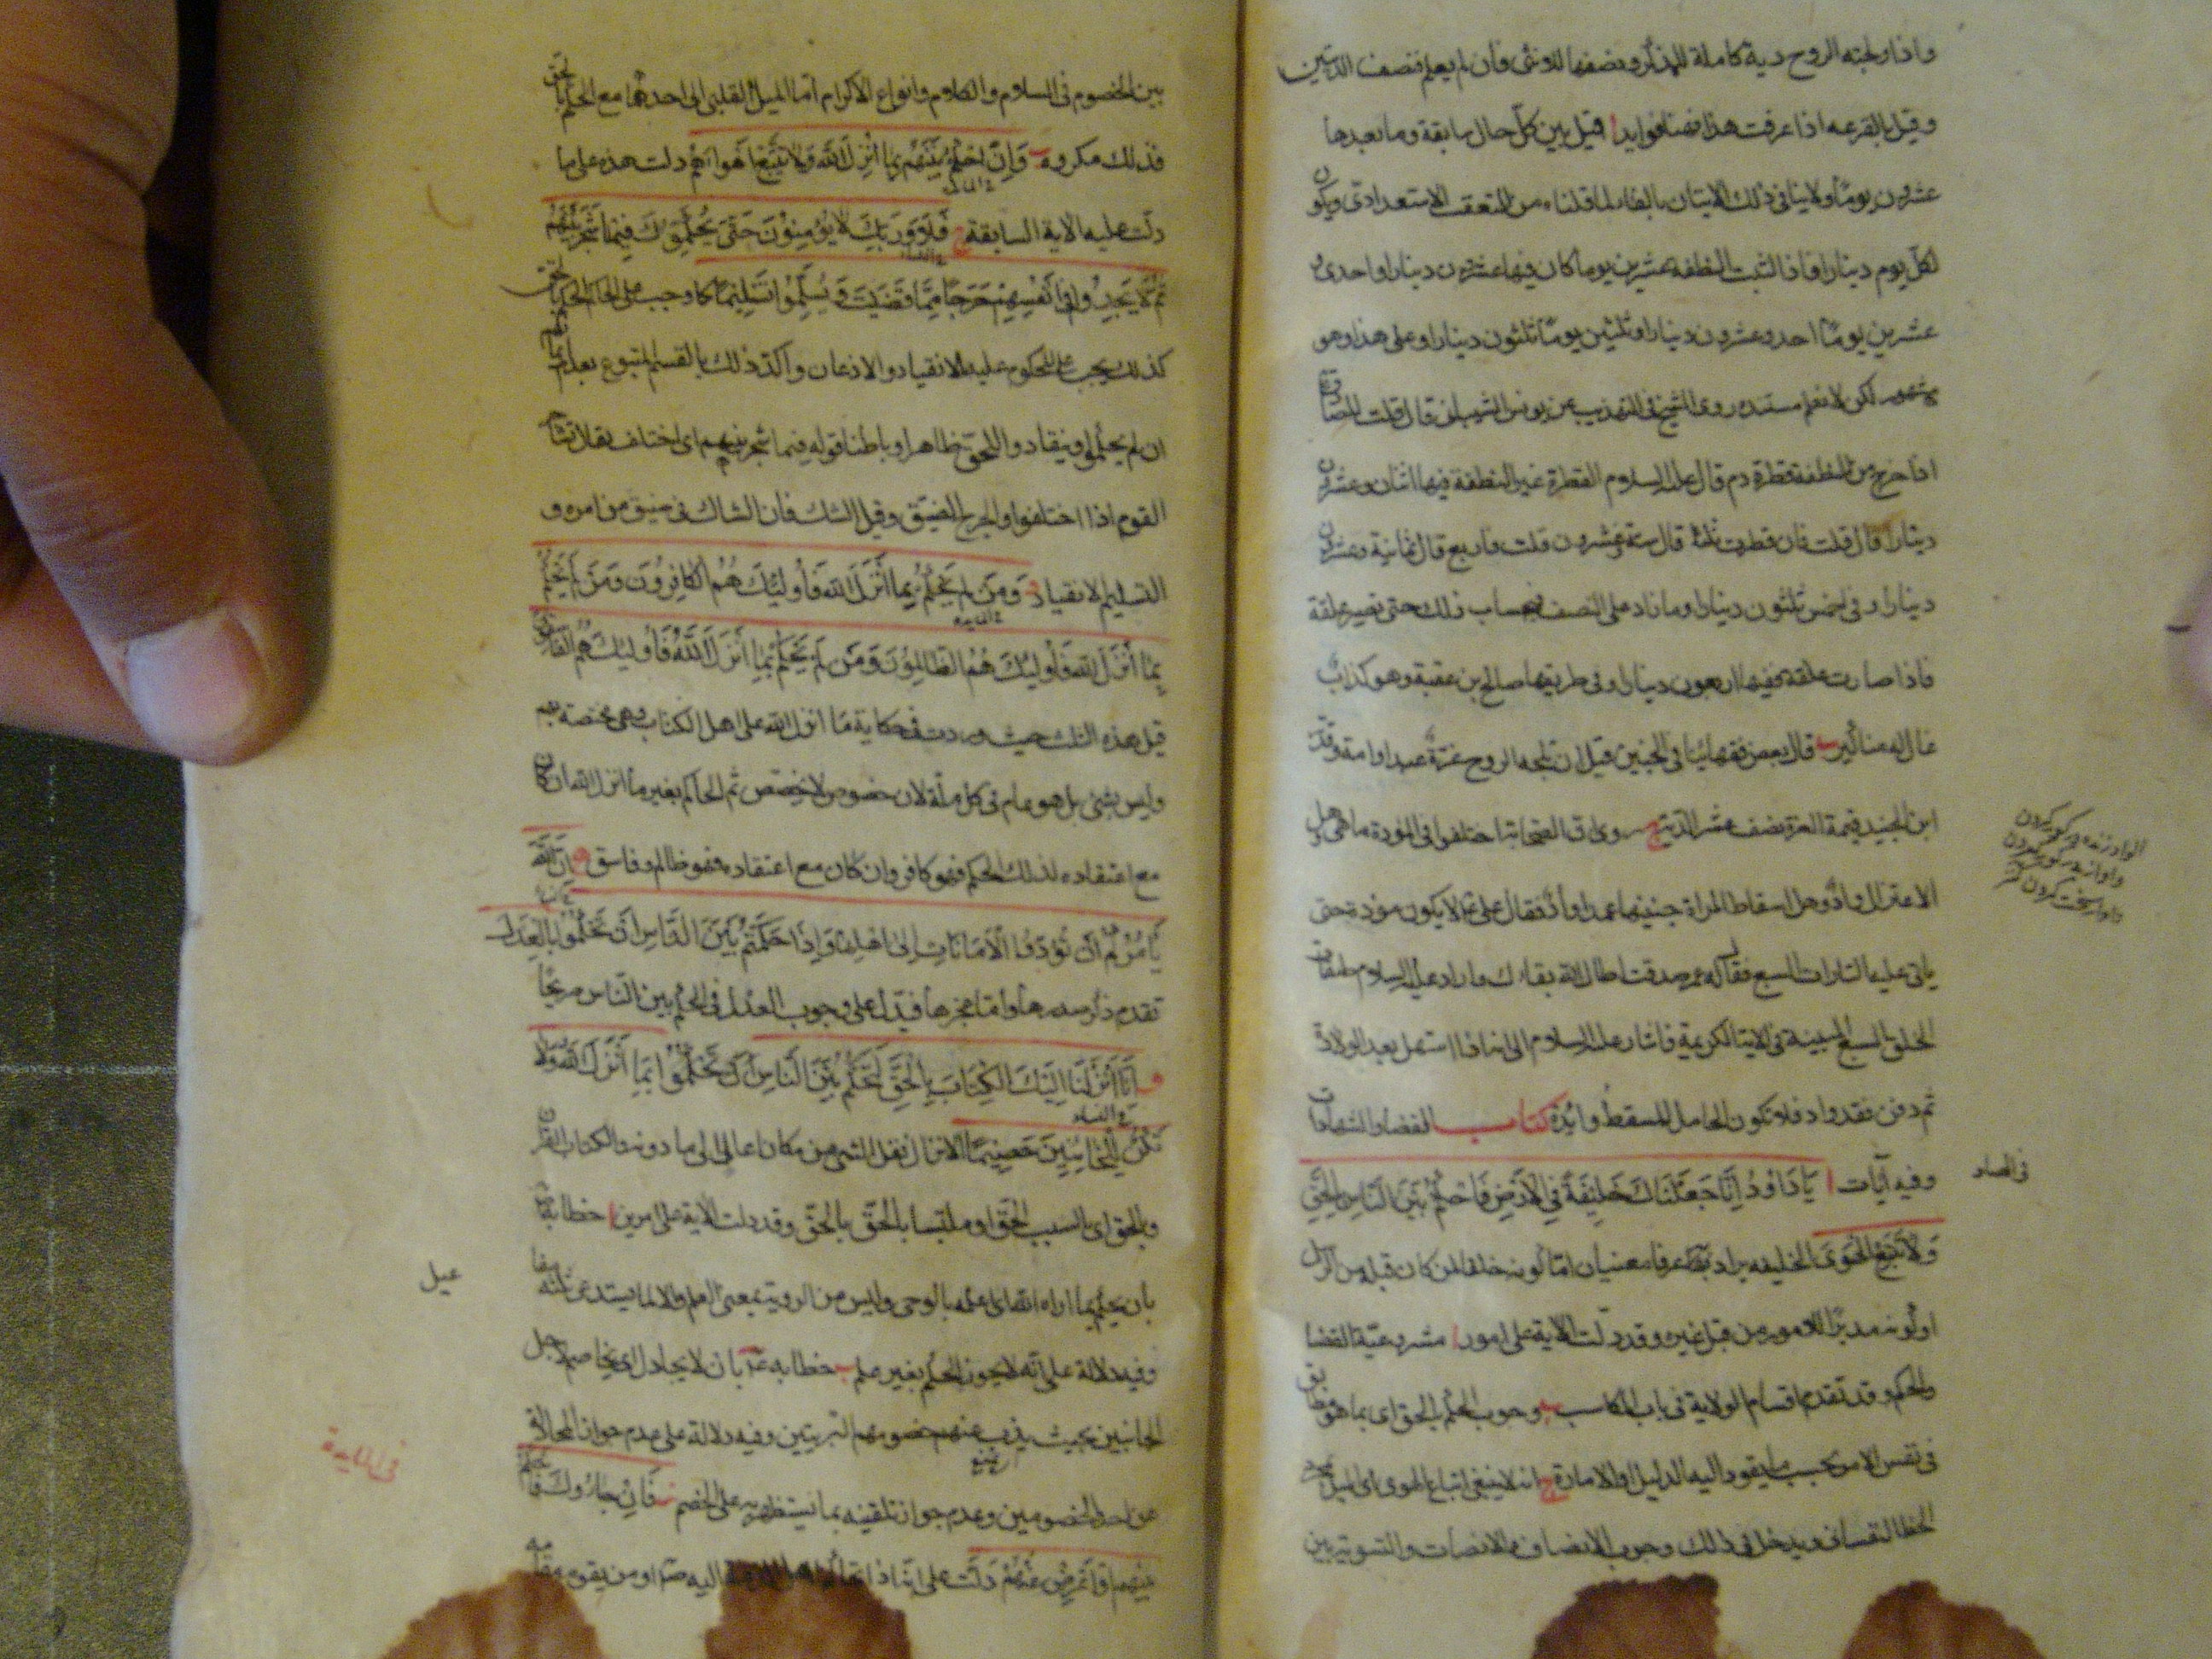 واذا ولجته الروح دية كاملة للذكر ونصفها للانثى وان لم يعلم فنصف الديتين
وقيل بالقرعه اذا عرفت هذا فهنا فوايد ا قيل بين كل حال سابقة وما بعدها
عشرون يوما ولا ينافى ذلك الاتيان بالفاء لما قلناه من التعقب الاستعدادى ويكون
لكل يوم دينار فاذا لبثت النطفة عشرين يوما كان فيها عشرون دينارا واحدى و
عشرين يوما احد وعشرون دينارا وثلثين يوما ثلثون دينارا وعلى هذا وهو
مشهور لكن لا نعلم مستنده روى الشيخ فى التهذيب عن يونس الشيبانى قال قلت للصادق
اذا خرج من النطفة قطرة دم قال عليه السلام القطرة عشر النطفة فيها اثنان وعشرون
دينارا قال قلت فان قطرت ثلثا قال ستة وعشرون قلت فاربع قال ثمانية وعشرون
دينارا وفى خمس ثلثون دينارا وما زاد على النصف فبحساب ذلك حتى تصير علقة
فاذا صارت علقة ففيها اربعون دينارا وفى طريقها صالح بن عقبة وهو كذاب
غال له مناكير ب قال بعض فقهائنا فى الجنين قبل ان تلجه الروح غرة عبد او امة وقدر
ابن الجنيد قيمة الغرة بنصف عشر الدية ج روى ان الصحابة اختلفوا فى الموؤدة ما هى وهل
الاعتزال وأد وهل اسقاط المراة جنينها عمدا وأد فقال على ع لا يكون موؤدة حتى
ياتى عليه التارات السبع فقال له عمر صدقت اطال الله بقاءك واراد عليه السلام طبقات
الخلق السبع المبينة فى الاية الكريمة فاشار عليه السلام الى انه اذا استهل بعد الولادة
ثم دفن فقد وئد فلا تكون الحامل المسقط وائدة كتاب القضاء والشهادات
وفيه آيات ا يَا دَاوُدُ اِنَّا جَعَلْنَاكَ خَلِيفَةً فِي الْاَرْضِ فَاحْكُمْ بَيْنَ النَّاسِ بِالْحَقِّ
وَلَا تَتَّبِعِ الْهَوَى الخليفه يراد به عرفا معنيان اما كونه خلفا لمن كان قبله من الرسل
او كونه مدبرا للامور من قبل غيره وقد دلت الاية على امور ا مشروعية القضا
والحكم وقد تقدم اقسام الولاية فى باب المكاسب ب وجوب الحكم بالحق اى بما هو مطابق
فى نفس الامر بحسب ما يقود اليه الدليل او الامارة ج انه لا ينبغى اتباع الهوى اى الميل
الحظ النفسانى ويدخل فى ذلك وجوب الانصاف والانصات والتسوية بين
فى الصاد
بين الخصوم فى السلام والكلام وانواع الاكرام اما الميل القلبى الى احدهما مع الحكم بالحق
فذلك مكروه ب وَاِنِ احْكُمْ بَيْنَهُمْ بِمَا اَنْزَلَ اللهُ وَلَا تَتَّبِعْ اَهْوَاءَهُمْ دلت هذه على ما
دلت عليه الاية السابقة ج فَلَا وَرَبِّكَ لَا يُؤْمِنُوْنَ حَتّى يُحَكِّمُوكَ فِيْمَا شَجَرَ بَيْنَهُمْ
ثُمَّ لَا يَجِدُوا فِى اَنْفُسِهِمْ حَرَجًا مِمَّا قَضَيْتَ وَ يُسَلِّمُوا تَسْلِيْمًا كما وجب على الحاكم الحكم بالحق
كذلك يجب على المحكوم عليه الانقياد والاذعان واكد ذلك بالقسم المتبوع بعدم
ان لم يحكموه وينقادوا للحق ظاهرا وباطنا قوله فيما شجر بينهم اى اختلف يقال تشاجر
القوم اذا اختلفوا والحرج الضيق وقيل الشك فان الشاك فى ضيق من امره و
التسليم الانقياد د وَمَنْ لَمْ يَحْكُمْ بِمَا اَنْزَلَ اللهُ فَاُولئِكَ هُمُ الْكَافِرُوْنَ وَمَنْ لَمْ يَحْكُمْ
بِمَا اَنْزَلَ اللهُ فَاُولئِكَ هُمُ الظَّالِمُوْنَ وَمَنْ لَمْ يَحْكُمْ بِمَا اَنْزَلَ اللهُ فَاُولئِكَ هُمُ الْفَاسِقُوْنَ
قيل هذه الثلث حيث وردت فى حكاية ما انزل الله على اهل الكتاب فهى مختصة بهم
وليس بشئ بل هو عام فى كل ملة لان خصوص لا يخصص ثم الحاكم بغير ما انزل الله ان كان
مع اعتقاده لذلك الحكم فهو كافر وان كان مع اعتقاده فهو ظالم وفاسق ه اِنَّ اللهَ
يَأْمُرُكُمْ اَنْ تُؤَدُّوا الْاَمَانَاتِ اِلى اَهْلِهَا وَاِذَا حَكَمْتُمْ بَيْنَ النَّاسِ اَنْ تَحْكُمُوْا بِالْعَدْلِ
تقدم ذكر صدرها واما عجزها فيدل على وجوب العدل فى الحكم بين الناس صريحا
و اِنَّا اَنْزَلْنَا اِلَيْكَ الْكِتَابَ بِالْحَقِّ لِتَحْكُمَ بَيْنَ النَّاسِ اَنْ تَحْكُمُوْا بِمَا اَنْزَلَ اللهُ وَلَا
تَكُنْ لِلْخَائِنِيْنَ خَصِيْمًا الانزال نقل الشئ من مكان عالى الى ما دونه والكتاب القرآن
وبالحق اى بالسبب الحق او ملتبسا بالحق وقد دلت الاية على امرين ا خطابه
بان يحكم بما اراه الله اى علمه بالوحى وليس من الروية بمعنى العلم والا لاستدعى ثلثة
وفيه دلالة على انه لا يجوز الحكم بغير علم ب خطابه بان لا يجادل اى يخاصم لاجل
الخائنين بحيث يذب عنهم خصومهم البريئين وفيه دلالة على عدم جواز المجادلة
عن احد الخصومين وعدم جواز تلقينه بما يستظهر به على الخصم ز فَاِنْ جَاؤُكَ فَاحْكُمْ
بَيْنَهُمْ اَوْ اَعْرِضْ عَنْهُمْ دلت على انه اذا تحاكم اليه او من يقوم مقامه
فى المايدة